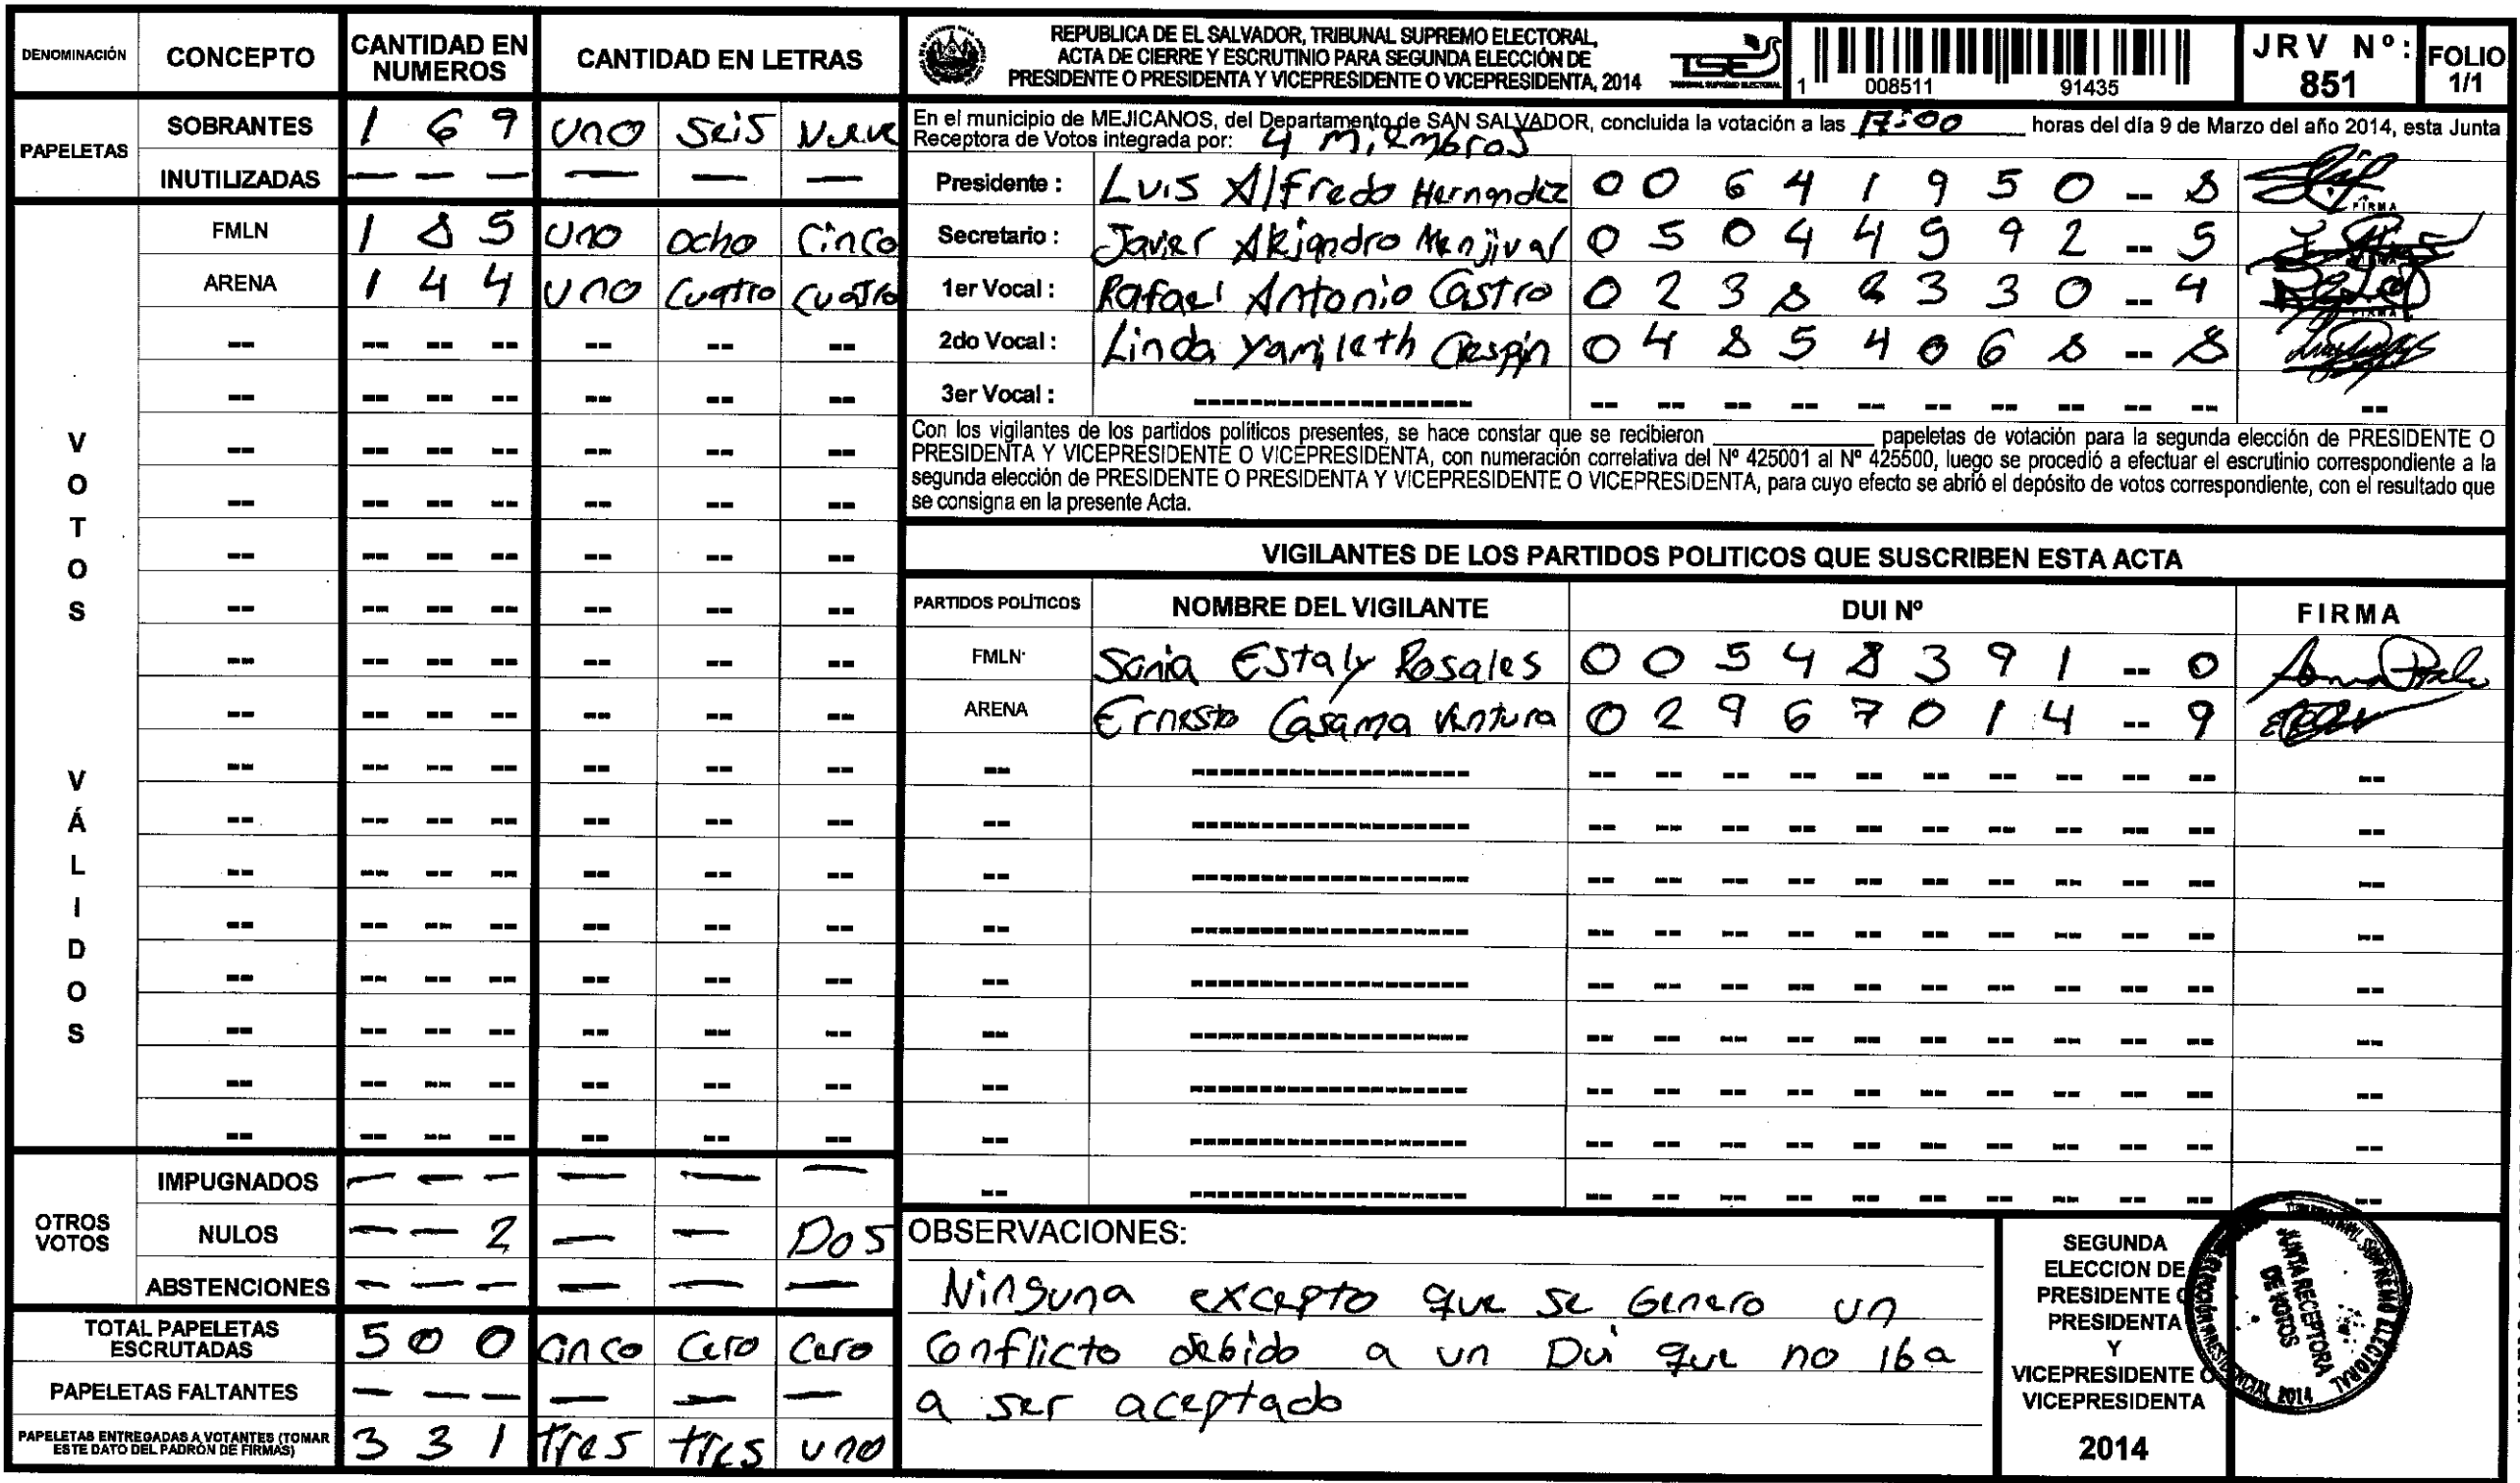 DENOMINACIÓN CONCEPTO CANTIDAD EN NUMEROS CANTIDAD EN LETRAS
PAPELETAS
SOBRANTES 1 6 9 uno seis Nueve
INUTILIZADAS — — — — — —
VOTOS VÁLIDOS
FMLN 1 8 5 uno ocho cinco
ARENA 1 4 4 uno cuatro cuatro
OTROS VOTOS
IMPUGNADOS — — — — — —
NULOS — — 2 — — Dos
ABSTENCIONES — — — — — —
TOTAL PAPELETAS ESCRUTADAS 5 0 0 cinco cero cero
PAPELETAS FALTANTES — — — — — —
PAPELETAS ENTREGADAS A VOTANTES (TOMAR ESTE DATO DEL PADRÓN DE FIRMAS) 3 3 1 tres tres uno
REPUBLICA DE EL SALVADOR, TRIBUNAL SUPREMO ELECTORAL,
ACTA DE CIERRE Y ESCRUTINIO PARA SEGUNDA ELECCIÓN DE
PRESIDENTE O PRESIDENTA Y VICEPRESIDENTE O VICEPRESIDENTA, 2014
TSE
TRIBUNAL SUPREMO ELECTORAL
1 008511 91435
JRV Nº: 851
FOLIO 1/1
En el municipio de MEJICANOS, del Departamento de SAN SALVADOR, concluida la votación a las 17:00 horas del día 9 de Marzo del año 2014, esta Junta
Receptora de Votos integrada por: 4 Miembros
Presidente : Luis Alfredo Hernandez 0 0 6 4 1 9 5 0 -- 8
Secretario : Javier Alejandro Menjivar 0 5 0 4 4 9 9 2 -- 5
1er Vocal : Rafael Antonio Castro 0 2 3 8 8 3 3 0 -- 4
2do Vocal : Linda Yamileth Crespin 0 4 8 5 4 0 6 8 -- 8
3er Vocal :
Con los vigilantes de los partidos políticos presentes, se hace constar que se recibieron ____ papeletas de votación para la segunda elección de PRESIDENTE O
PRESIDENTA Y VICEPRESIDENTE O VICEPRESIDENTA, con numeración correlativa del Nº 425001 al Nº 425500, luego se procedió a efectuar el escrutinio correspondiente a la
segunda elección de PRESIDENTE O PRESIDENTA Y VICEPRESIDENTE O VICEPRESIDENTA, para cuyo efecto se abrió el depósito de votos correspondiente, con el resultado que
se consigna en la presente Acta.
VIGILANTES DE LOS PARTIDOS POLITICOS QUE SUSCRIBEN ESTA ACTA
PARTIDOS POLÍTICOS NOMBRE DEL VIGILANTE DUI Nº FIRMA
FMLN Sonia Estaly Rosales 0 0 5 4 8 3 9 1 -- 0
ARENA Ernesto Casama Ventura 0 2 9 6 7 0 1 4 -- 9
OBSERVACIONES:
Ninguna excepto que se Genero un
conflicto debido a un Dui que no iba
a ser aceptado
SEGUNDA
ELECCION DE
PRESIDENTE O
PRESIDENTA
Y
VICEPRESIDENTE O
VICEPRESIDENTA
2014
JUNTA RECEPTORA
DE VOTOS